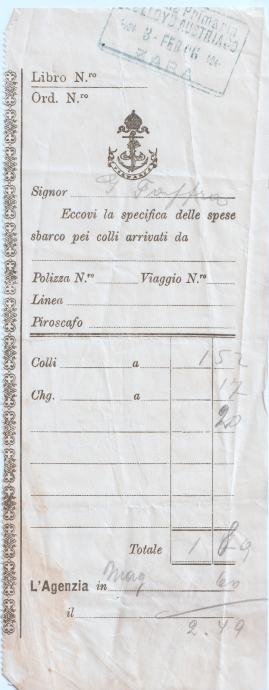 LLOYD AUSTRIACO
3 FEB 06
ZARA
Libro N.ro
Ord. N.ro
Signor G
Eccovi la specifica delle spese
sbarco pei colli arrivati da
Polizza N.ro Viaggio N.ro
Linea
Piroscafo
Colli a 1 52
Chg. a 17
20
Totale 1 89
L'Agenzia in Mag 60
il
2.49